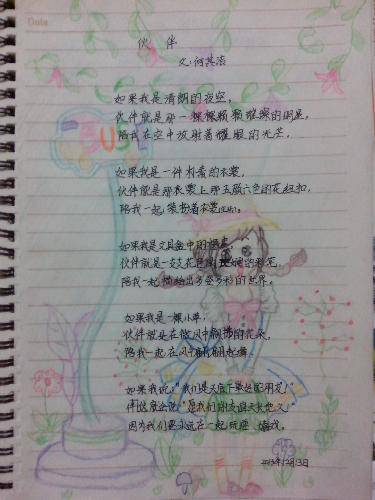 Date
伙 伴
文:何其洁
如果我是清朗的夜空,
伙伴就是那一棵棵颗颗璀璨的明星,
陪我在空中放射着耀眼的光芒。
如果我是一件朴素的衣裳,
伙伴就是那衣裳上那五颜六色的花纽扣,
陪我一起装扮着衣裳
如果我是文具盒中的
伙伴就是一支支花色斑斓的彩笔,
陪我一起描绘出多姿多彩的世界。
如果我是一棵小草,
伙伴就是在微风中飘扬的花朵,
陪我一起在风中翩翩起舞。
如果我说:"我们是天底下最好的朋友!"
伙伴就会说:"愿我们的友谊天长地久!"
因为我们要永远在一起玩耍、嬉戏。
2013年12月13日